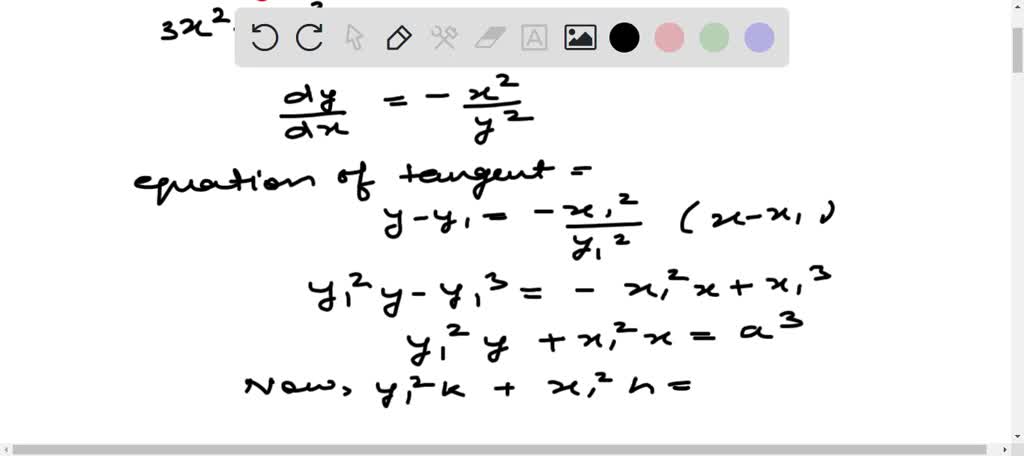 3x²
dy/dx = - x²/y²
equation of tangent =
y-y₁ = -x₁²/y₁² (x-x₁)
y₁²y-y₁³ = - x₁²x+x₁³
y₁²y + x₁²x = a³
Now, y₁²k + x₁²h =